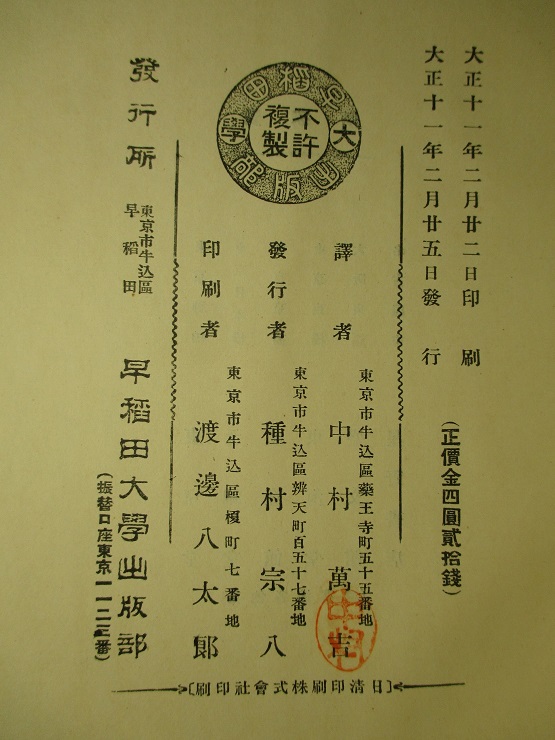 大正十一年二月廿二日印刷
大正十一年二月廿五日發行
(正價金四圓貳拾錢)
早稻田大學出版部
不許
複製
譯者
東京市牛込區藥王寺町五十五番地
中村萬吉
發行者
東京市牛込區辨天町百五十七番地
種村宗八
印刷者
東京市牛込區榎町七番地
渡邊八太郎
發行所
東京市牛込區
早稻田
早稻田大學出版部
(振替口座東京一一二三番)
〔日清印刷株式會社印刷〕